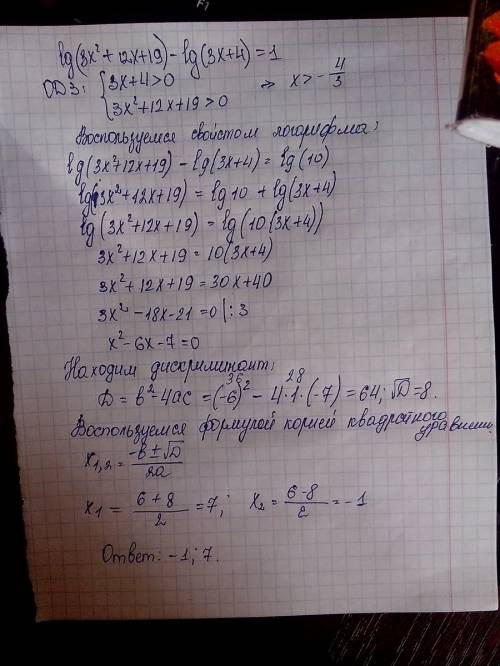 lg(3x²+12x+19)-lg(3x+4)=1
ОДЗ: {3x+4>0
{3x²+12x+19>0 => x>-4/3
Воспользуемся свойстом логарифма:
lg(3x²+12x+19)-lg(3x+4)=lg(10)
lg(3x²+12x+19)=lg10+lg(3x+4)
lg(3x²+12x+19)=lg(10(3x+4))
3x²+12x+19=10(3x+4)
3x²+12x+19=30x+40
3x²-18x-21=0|:3
x²-6x-7=0
Находим дискриминант:
36 28
D=b²-4ac=(-6)²-4·1·(-7)=64; √D=8.
Воспользуемся формулой корней квадратного
x₁,₂=(-b±√D)/2a
x₁=(6+8)/2=7; x₂=(6-8)/2=-1
Ответ: -1; 7.